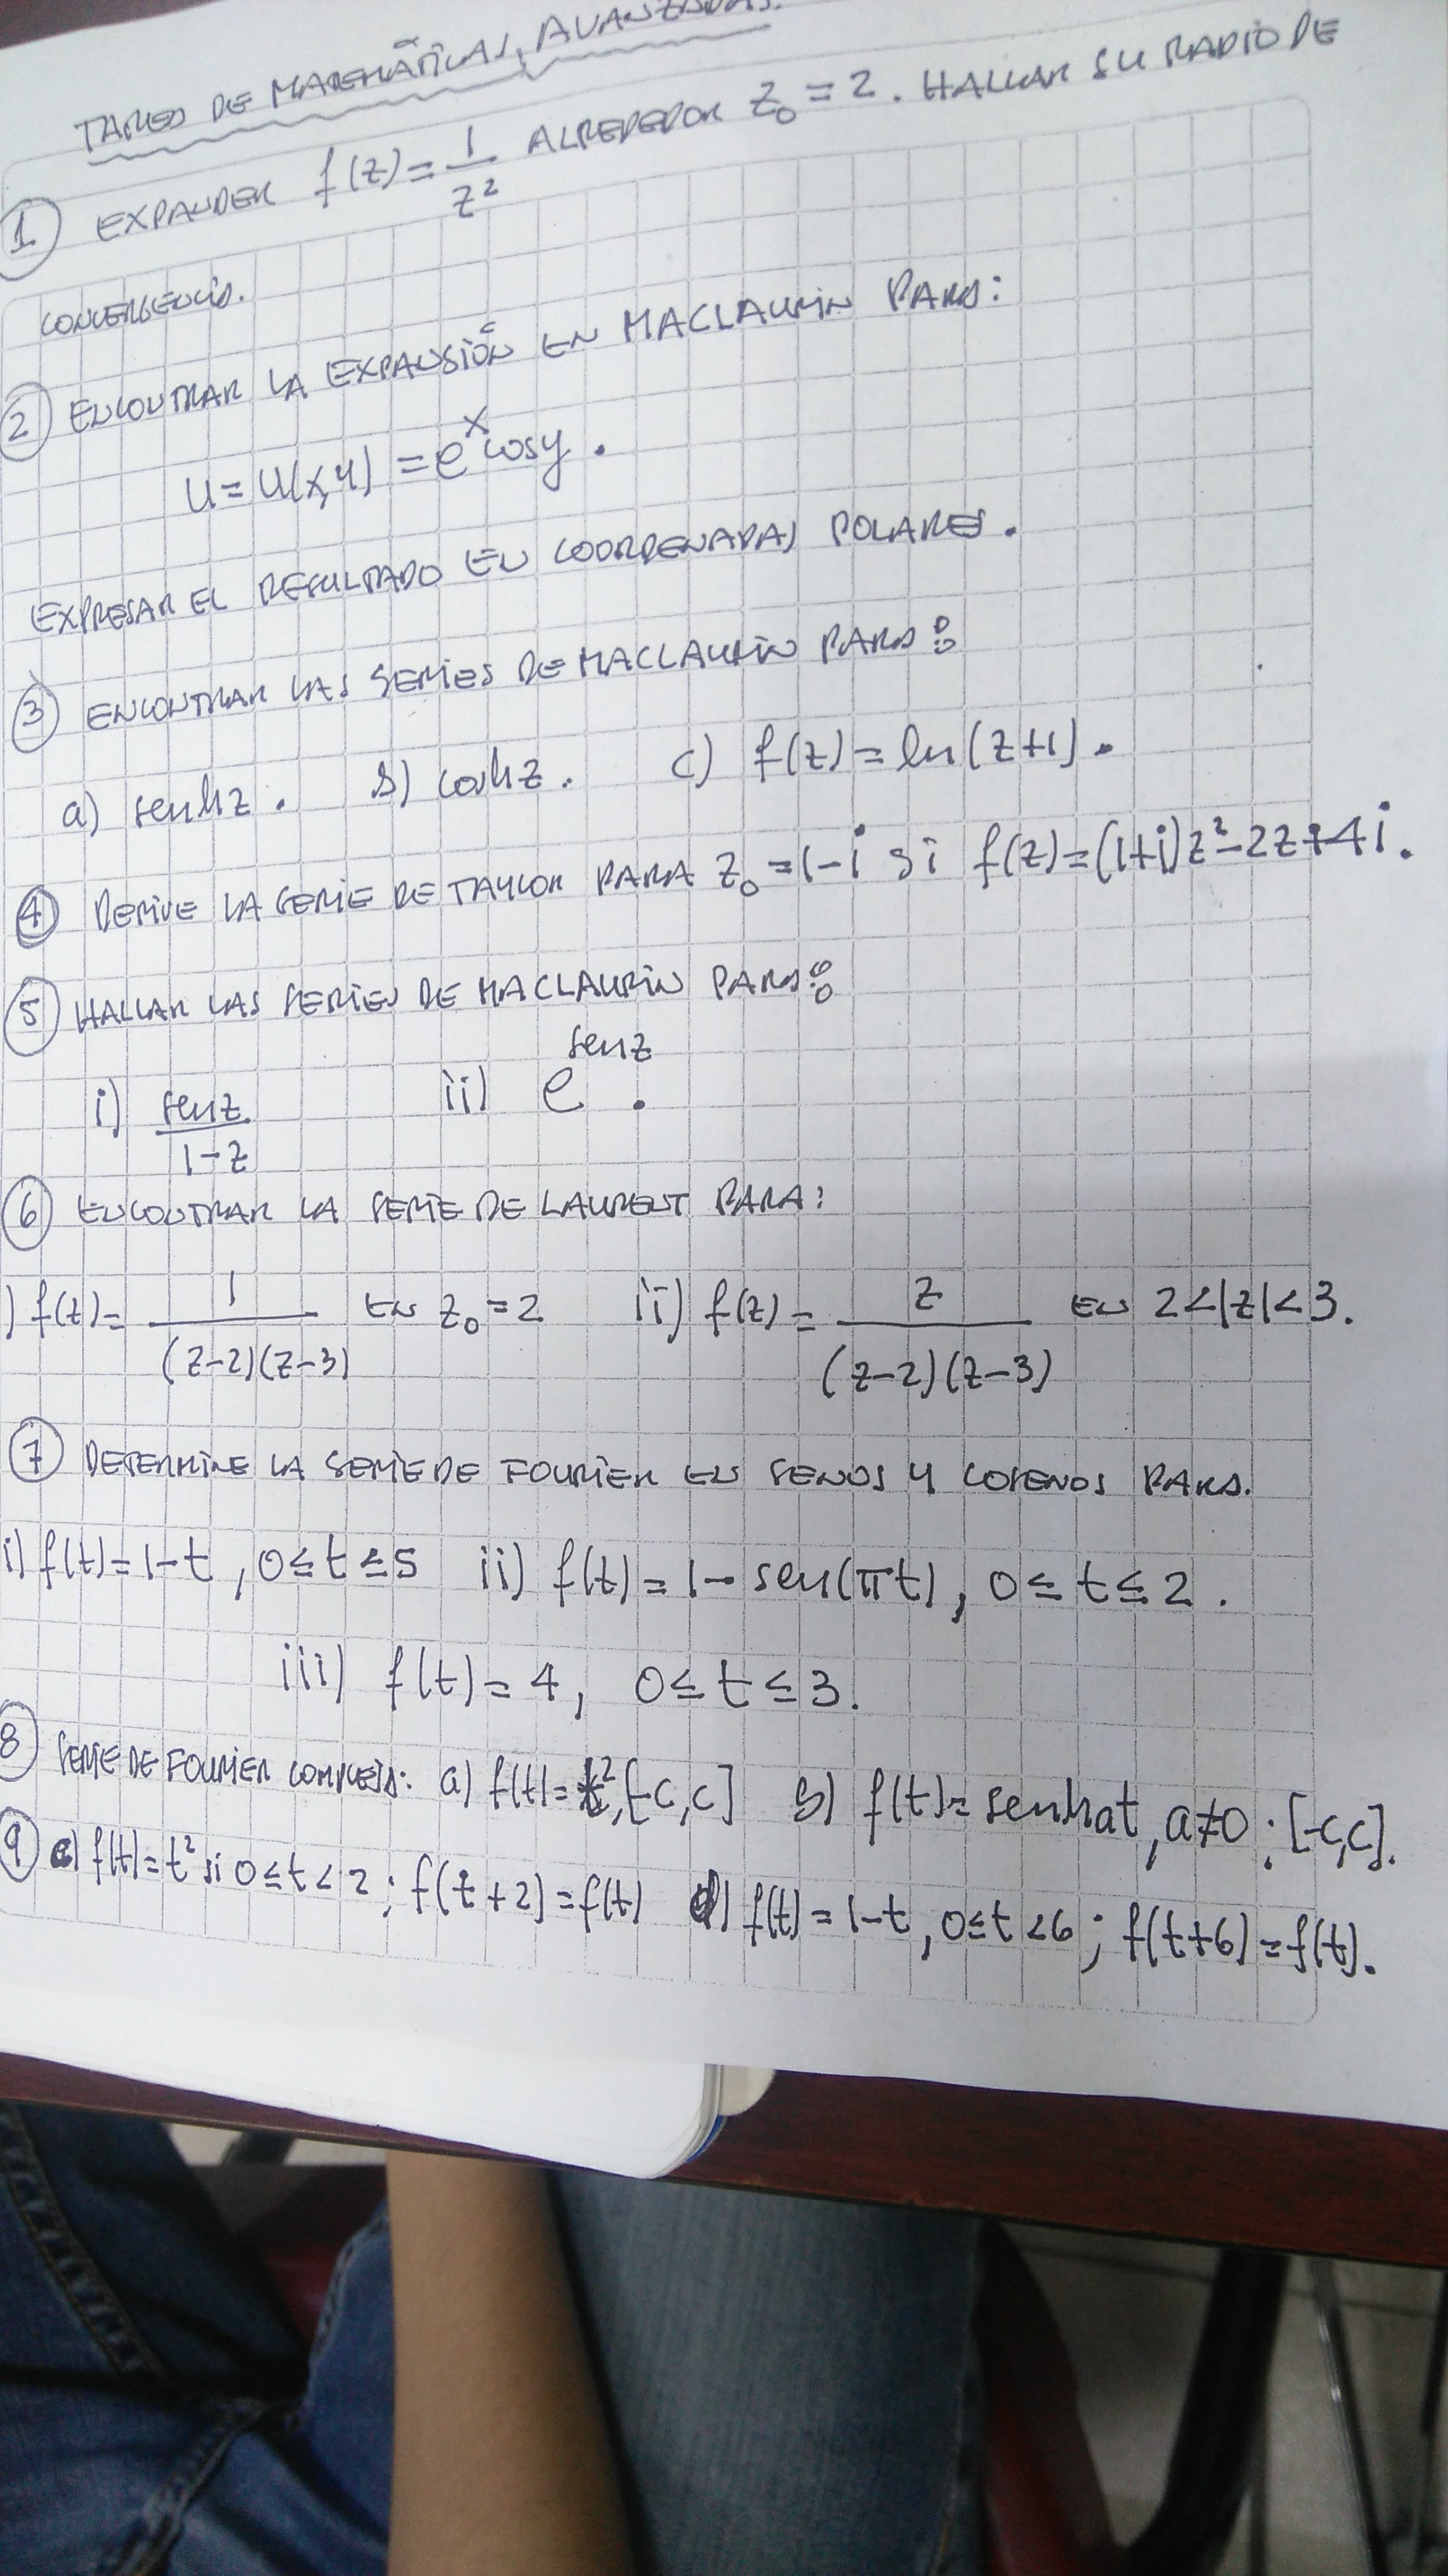 TAREA DE MATEMÁTICAS AVANZADAS.
① EXPANDER f(z) = 1/z² ALREDEDOR z₀ = 2. HALLAR SU RADIO DE
CONVERGENCIA.
② ENCONTRAR LA EXPANSIÓN EN MACLAURIN PARA:
u = u(x,y) = eˣ cosy.
EXPRESAR EL RESULTADO EN COORDENADAS POLARES.
③ ENCONTRAR LAS SERIES DE MACLAURIN PARA:
a) senhz. b) coshz. c) f(z) = ln(z+1).
④ DERIVE LA SERIE DE TAYLOR PARA z₀ = 1-i si f(z) = (1+i)z² - 2z + 4i.
⑤ HALLAR LAS SERIES DE MACLAURIN PARA:
i) senz/(1-z) ii) e^senz.
⑥ ENCONTRAR LA SERIE DE LAURENT PARA:
) f(z) = 1/((z-2)(z-3)) EN z₀ = 2 ii) f(z) = z/((z-2)(z-3)) EN 2<|z|<3.
⑦ DETERMINE LA SERIE DE FOURIER EN SENOS Y COSENOS PARA.
i) f(t) = 1-t, 0≤t≤5 ii) f(t) = 1-sen(πt), 0≤t≤2.
iii) f(t) = 4, 0≤t≤3.
⑧ SERIE DE FOURIER COMPLEJA: a) f(t) = t², [-c,c] b) f(t) = senhat, a≠0; [-c,c].
⑨ c) f(t) = t² si 0≤t<2; f(t+2) = f(t) d) f(t) = 1-t, 0≤t<6; f(t+6) = f(t).